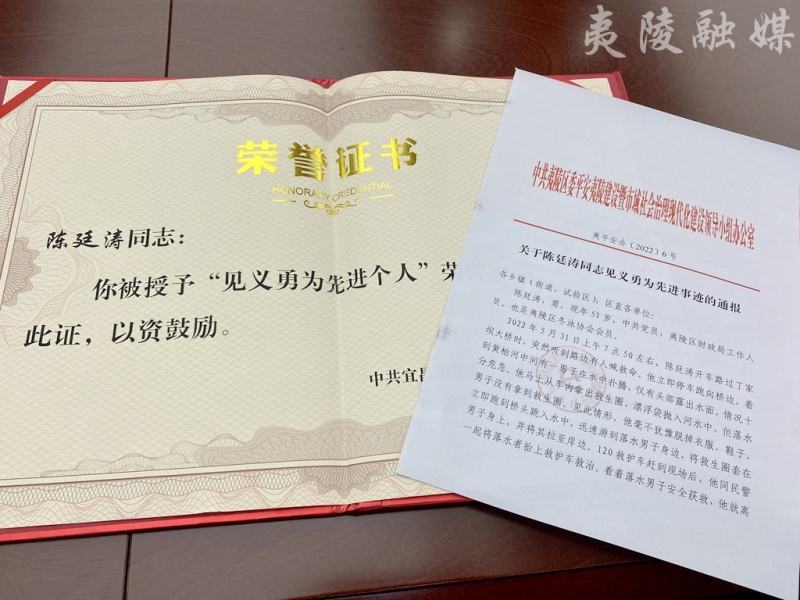 夷陵融媒
荣誉证书
HONORARY CREDENTIAL
陈廷涛同志：
你被授予“见义勇为先进个人”荣
此证，以资鼓励。
中共宜昌
中共夷陵区委平安夷陵建设暨市域社会治理现代化建设领导小组办公室
夷平安办〔2022〕6号
关于陈廷涛同志见义勇为先进事迹的通报
各乡镇（街道、试验区），区直各单位：
陈廷涛，男，现年51岁，中共党员，夷陵区财政局工作人
员，也是夷陵区冬泳协会会员。
2022年5月31日上午7点50左右，陈廷涛开车路过丁家
坝大桥时，突然听到路边有人喊救命。他立即停车跑向桥边，看
到黄柏河中间有一男子在水中扑腾，仅有头部露出水面，情况十
分危急。他马上从车内拿出救生圈、漂浮袋抛入河水中，但落水
男子没有拿到救生圈。见此情形，他毫不犹豫脱掉衣服、鞋子，
立即跑到桥头跳入水中，迅速游到落水男子身边，将救生圈套在
男子身上，并将其拉至岸边。120救护车赶到现场后，他同民警
一起将落水者抬上救护车救治，看着落水男子安全获救，他就离